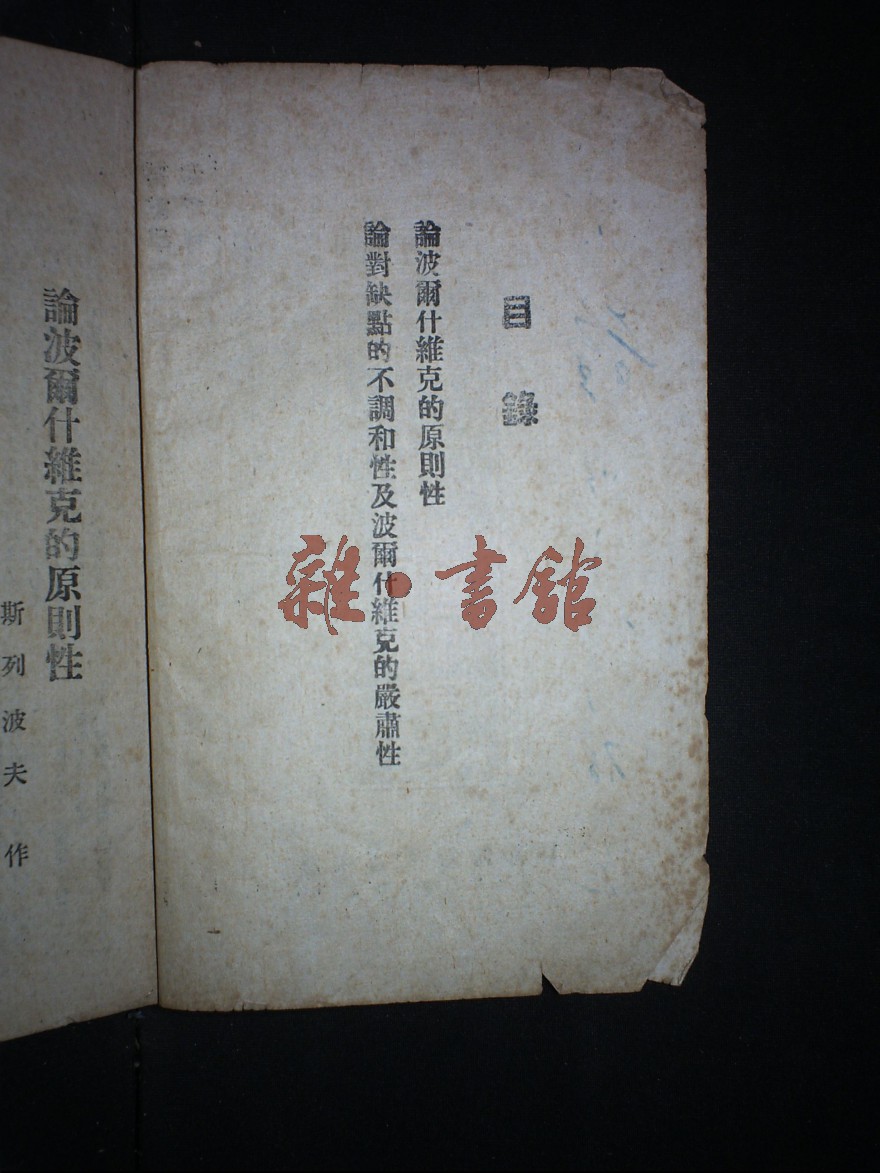 目錄
論波爾什維克的原則性
論對缺點的不調和性及波爾什維克的嚴肅性
雜·書舘
論波爾什維克的原則性
斯列波夫 作